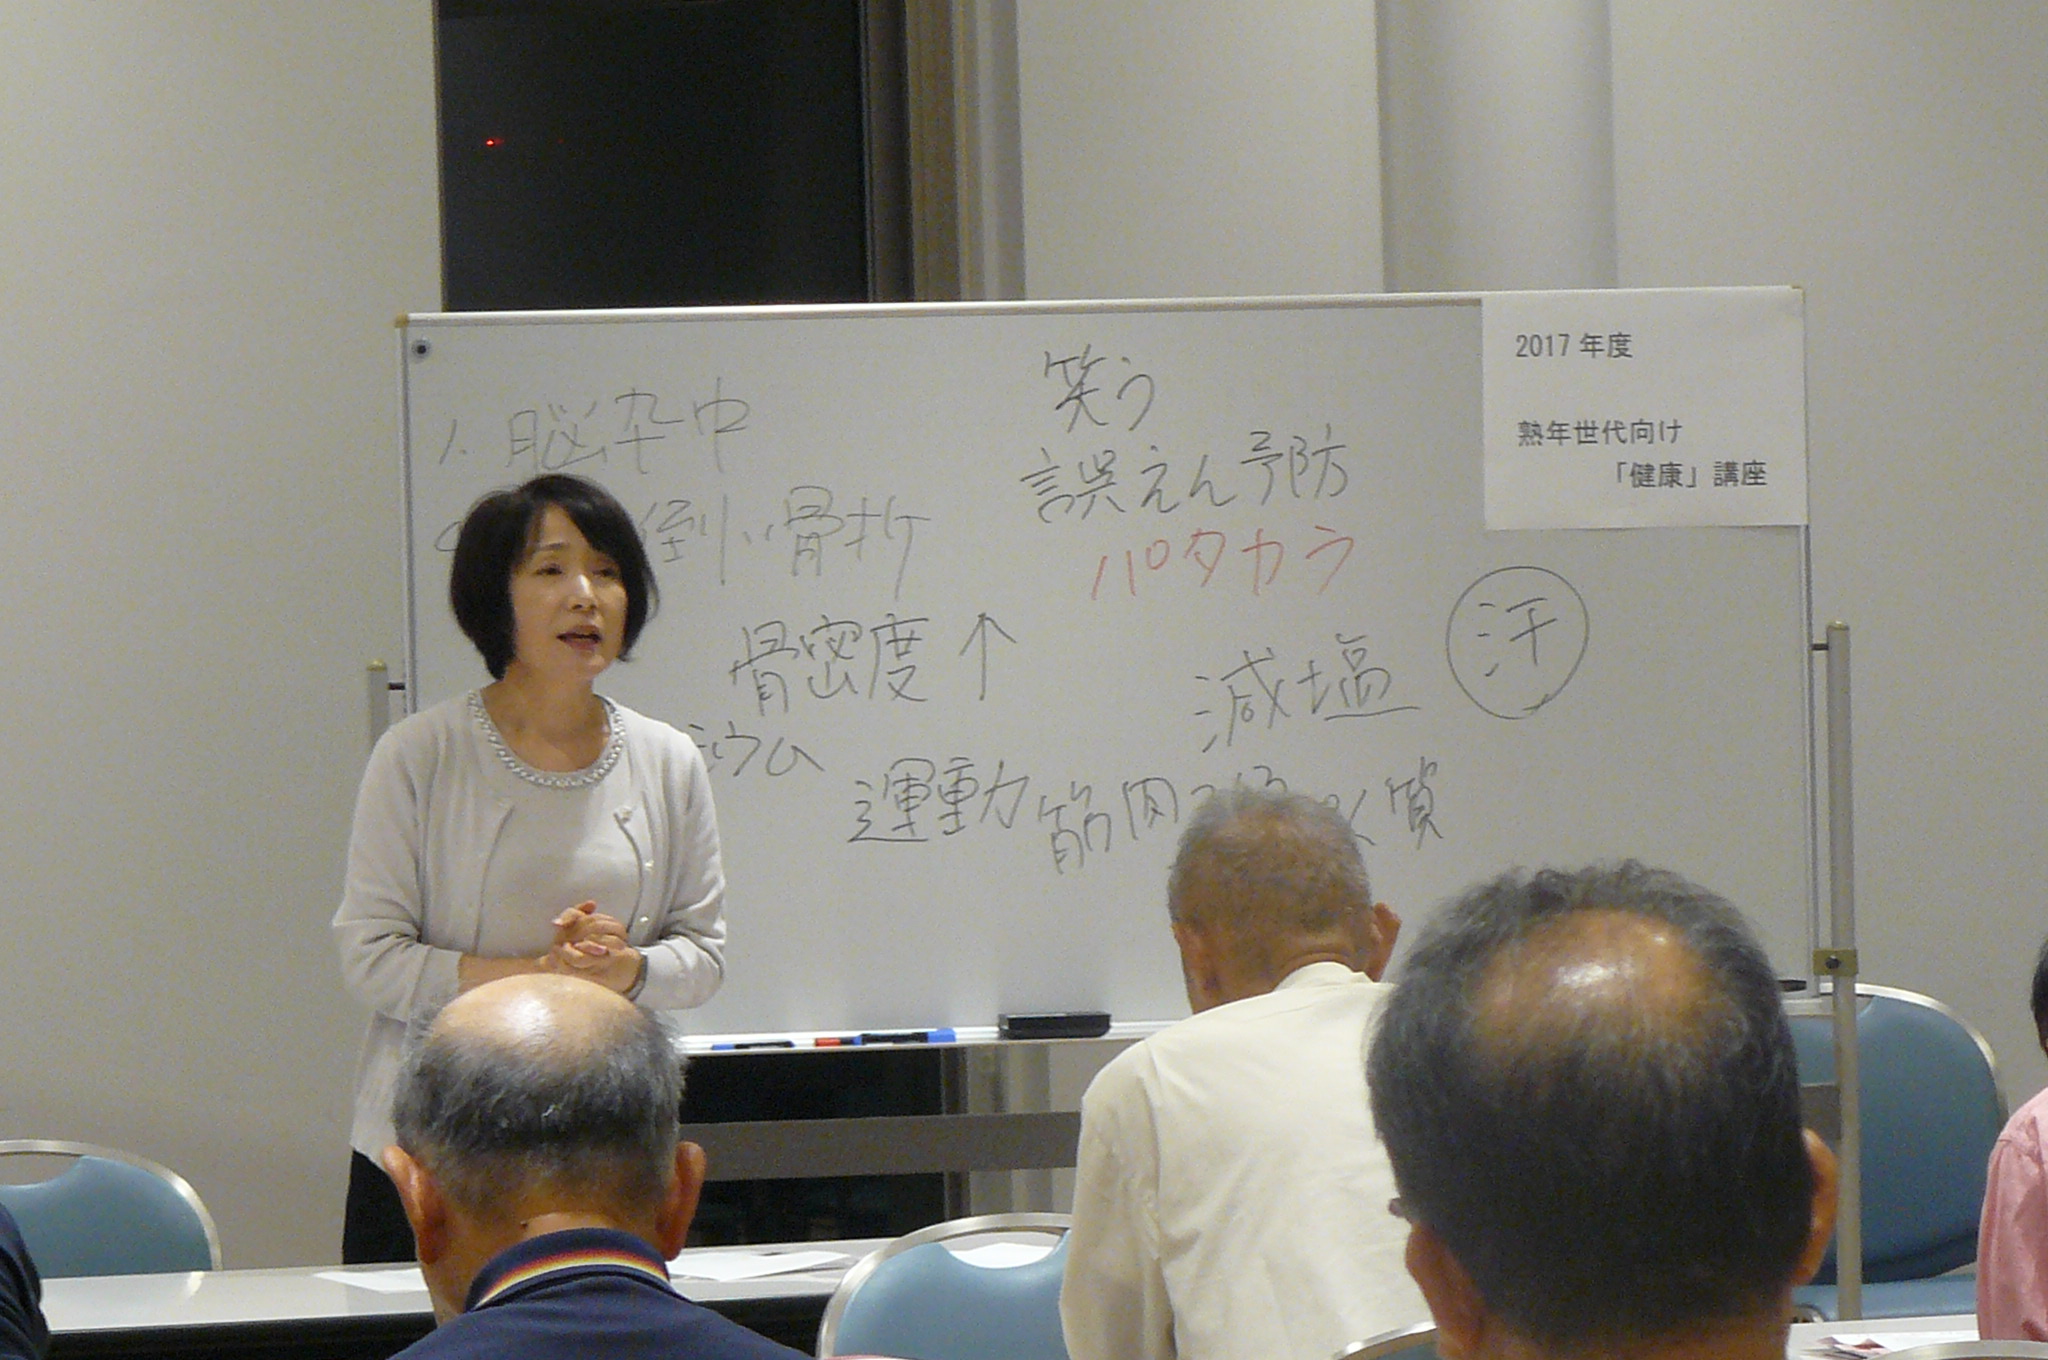 1. 脳卒中
倒、骨折
骨密度↑
シウム
運動
筋肉
く質
笑う
誤えん予防
パタカラ
減塩
汗
2017年度
熟年世代向け
「健康」講座